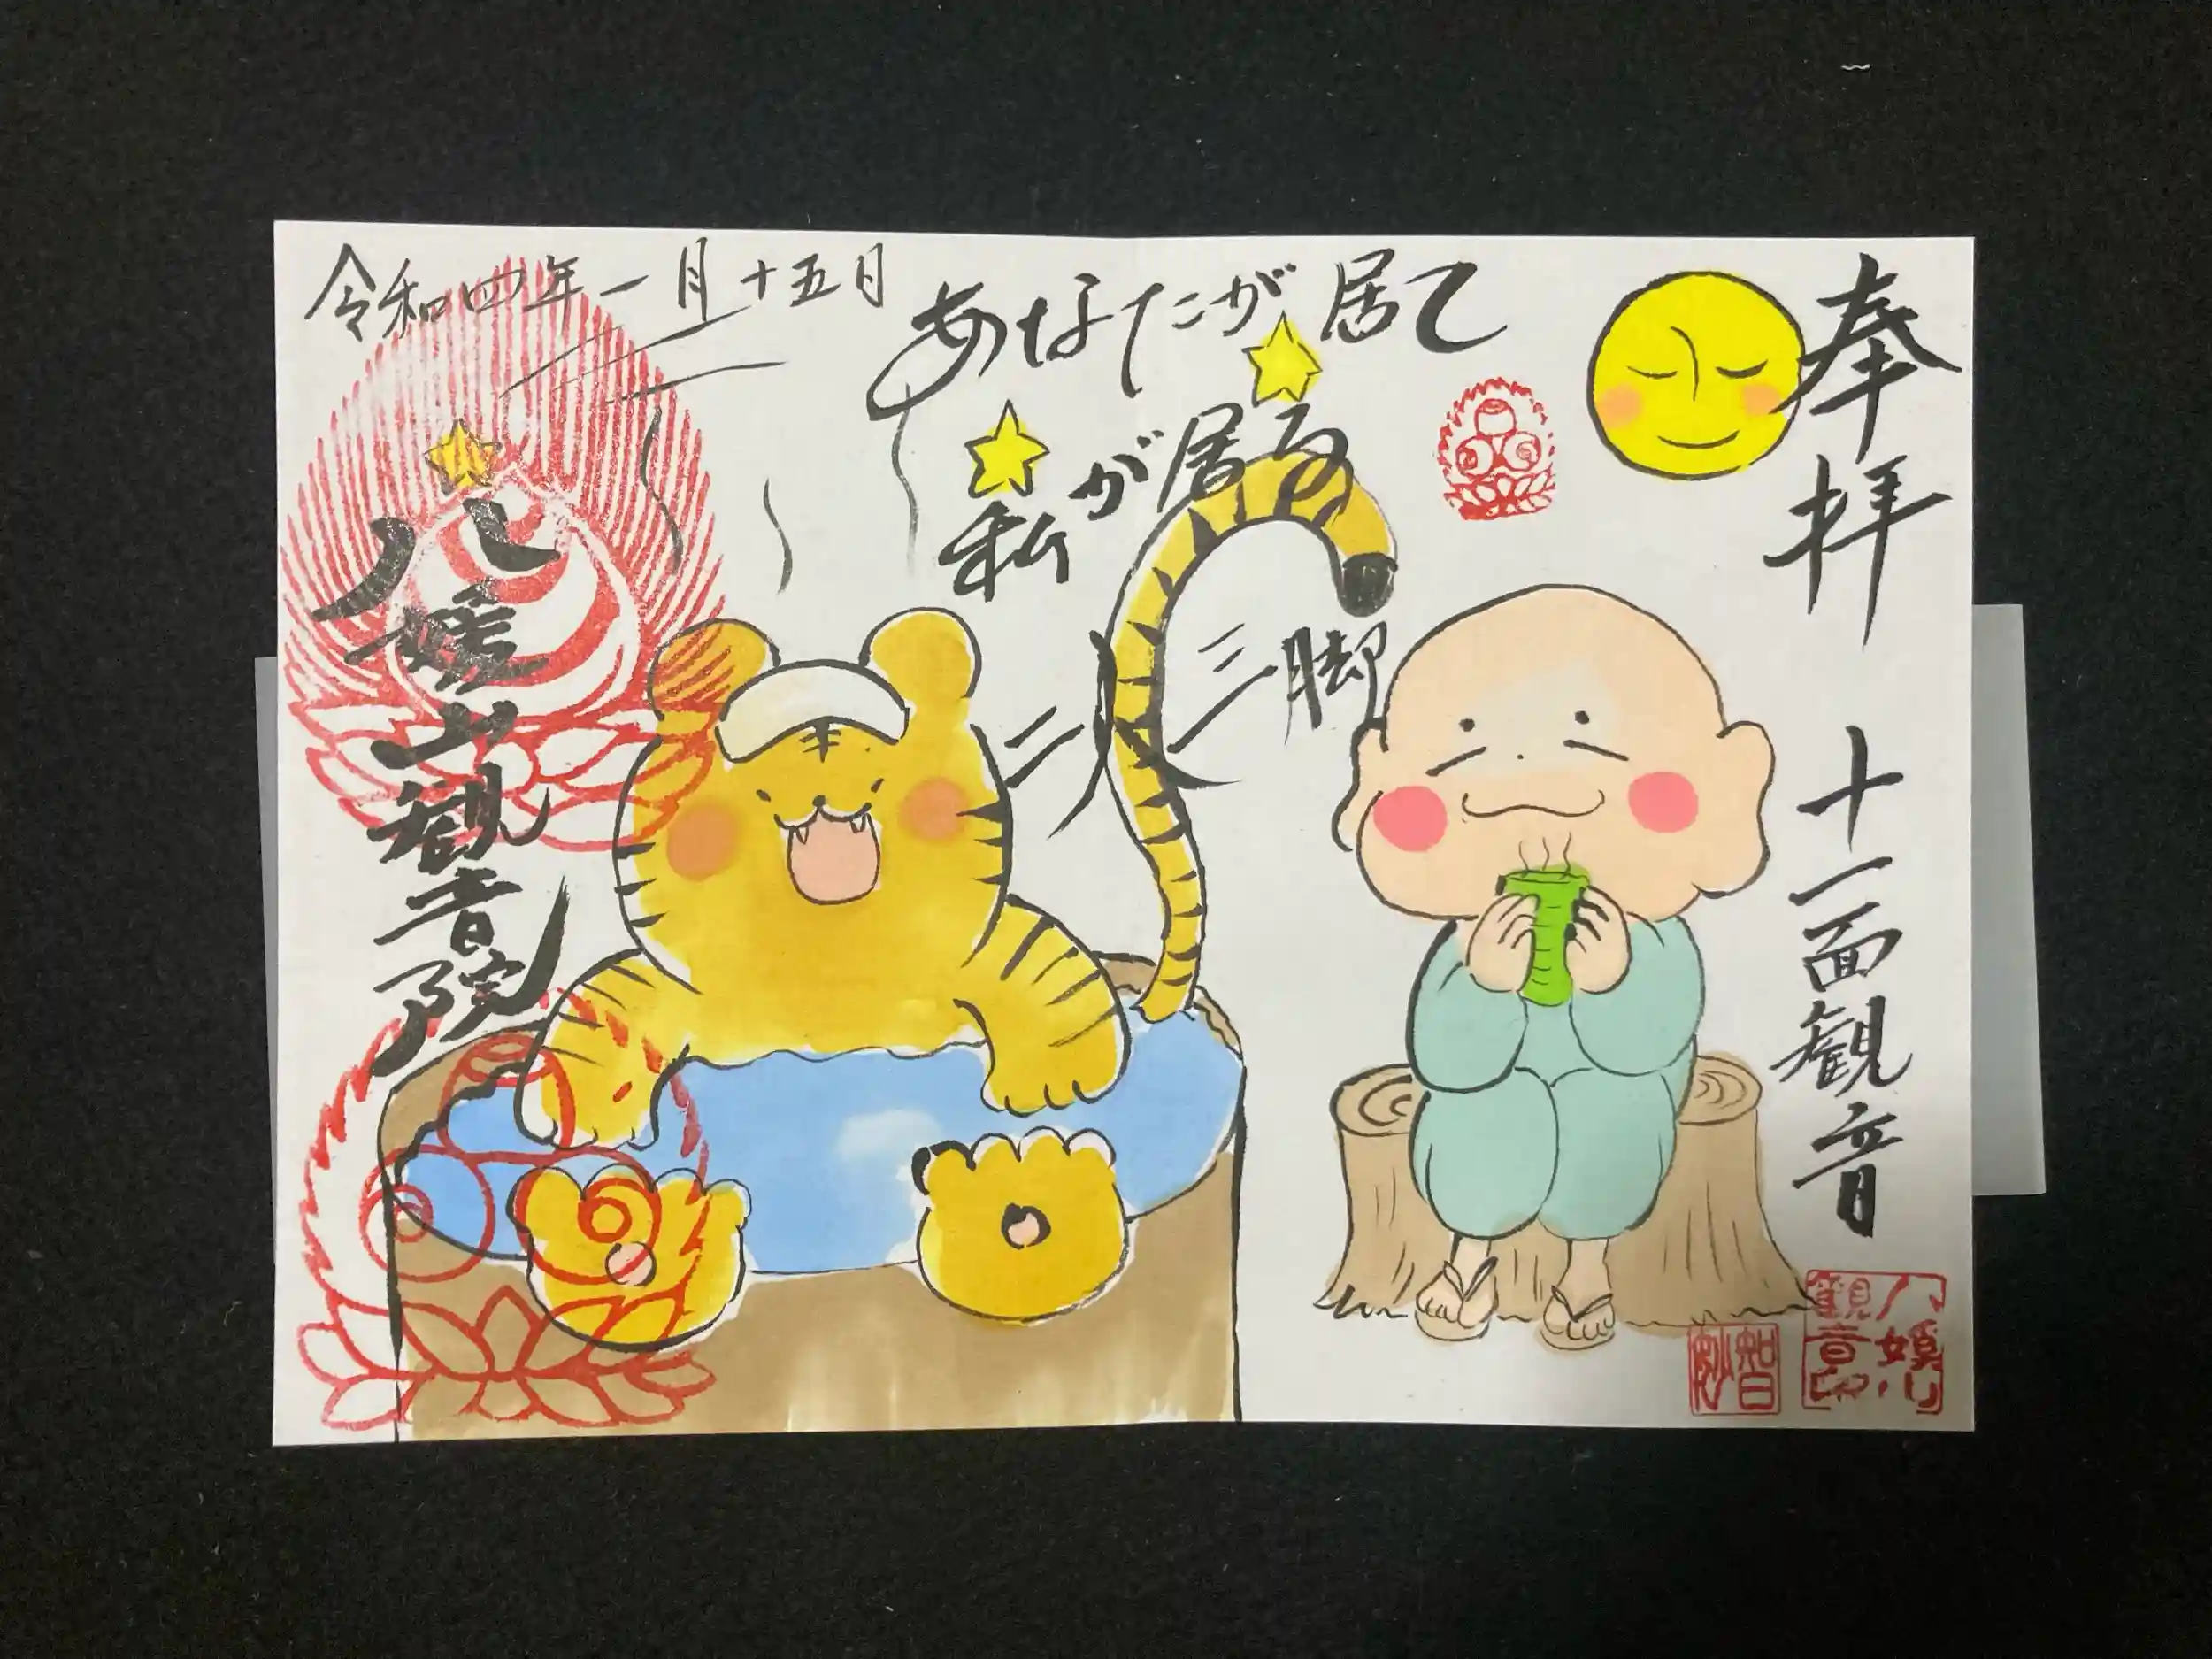 奉拝
十一面観音
あなたが居て
私が居る
二人三脚
令和四年一月十五日
八媛山観音院
八媛山
観音印
智妙